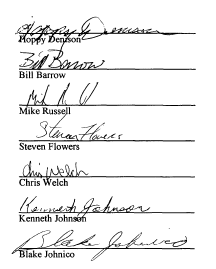 Hoppy Denison
Hoppy Denison
Bill Barrow
Bill Barrow
Mike Russell
Steven Flowers
Steven Flowers
Chris Welch
Chris Welch
Kenneth Johnson
Kenneth Johnson
Blake Johnico
Blake Johnico